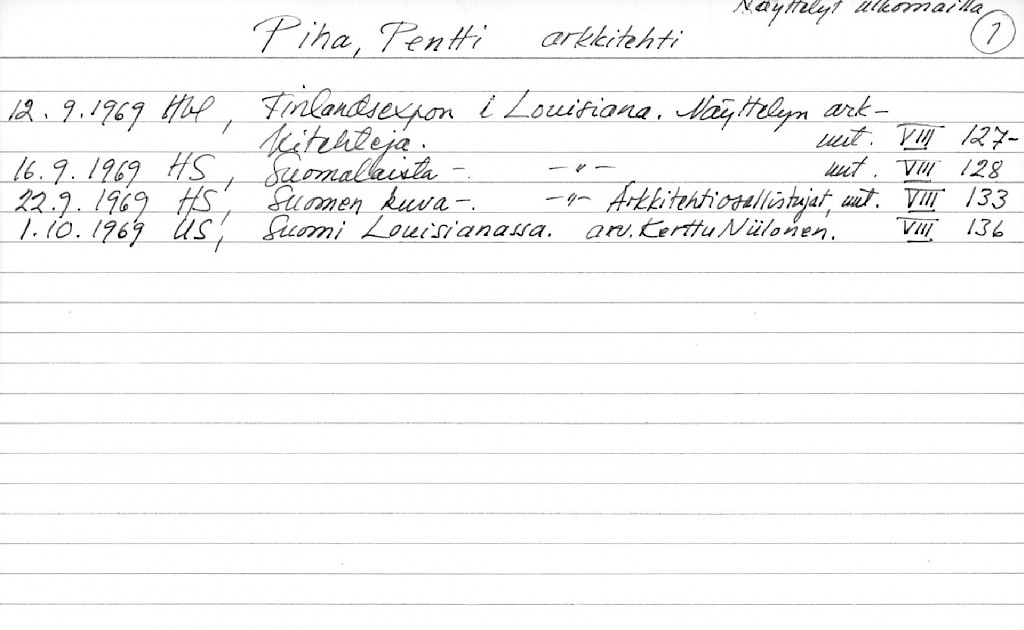 Näyttelyt ulkomailla
Piha, Pentti arkkitehti 1
12.9.1969 Hbl, Finlandsexpon i Louisiana. Näyttelyn ark-
kitehteja. uut. VIII 127-
16.9.1969 HS, Suomalaista -. -"- uut. VIII 128
22.9.1969 HS, Suomen kuva -. -"- Arkkitehtiosallistujat, uut. VIII 133
1.10.1969 US, Suomi Louisianassa. arv. Kerttu Niilonen. VIII 136